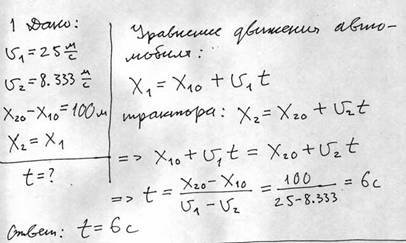 1 Дано:
υ₁ = 25 м/с
υ₂ = 8.333 м/с
X₂₀ - X₁₀ = 100 м
X₂ = X₁
t = ?
Уравнение движения авто-
мобиля:
X₁ = X₁₀ + υ₁t
трактора: X₂ = X₂₀ + υ₂t
=> X₁₀ + υ₁t = X₂₀ + υ₂t
=> t = (X₂₀ - X₁₀)/(υ₁ - υ₂) = 100/(25 - 8.333) = 6 с
Ответ: t = 6 с